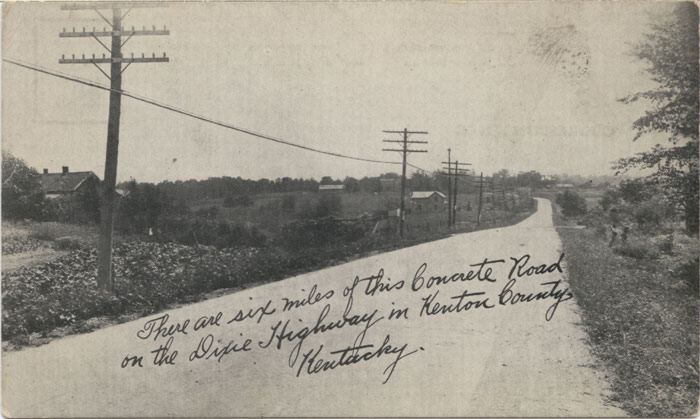 There are six miles of this Concrete Road
on the Dixie Highway in Kenton County
Kentucky.